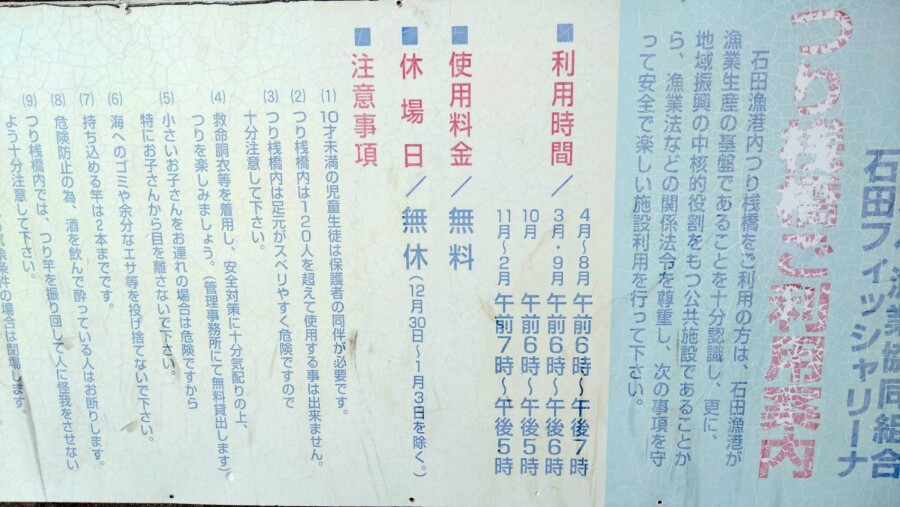 漁業協同組合
石田フィッシャリーナ
つり桟橋ご利用案内
石田漁港内つり桟橋をご利用の方は、石田漁港が
漁業生産の基盤であることを十分認識し、更に、
地域振興の中核的役割をもつ公共施設であることか
ら、漁業法などの関係法令を尊重し、次の事項を守
って安全で楽しい施設利用を行って下さい。
■利用時間/
4月~8月 午前6時~午後7時
3月・9月 午前6時~午後6時
10月 午前6時~午後5時
11月~2月 午前7時~午後5時
■使用料金/無料
■休場日/無休(12月30日~1月3日を除く。)
■注意事項
(1) 10才未満の児童生徒は保護者の同伴が必要です。
(2) つり桟橋内は120人を超えて使用する事は出来ません。
(3) つり桟橋内は足元がスベリやすく危険ですので
十分注意して下さい。
(4) 救命胴衣等を着用し、安全対策に十分気配りの上、
つりを楽しみましょう。(管理事務所にて無料貸出します)
(5) 小さいお子さんをお連れの場合は危険ですから
特にお子さんから目を離さないで下さい。
(6) 海へのゴミや余分なエサ等を投げ捨てないで下さい。
(7) 持ち込める竿は2本までです。
(8) 危険防止の為、酒を飲んで酔っている人はお断りします。
(9) つり桟橋内では、つり竿を振り回して人に怪我をさせない
よう十分注意して下さい。
条件の場合は閉場します。